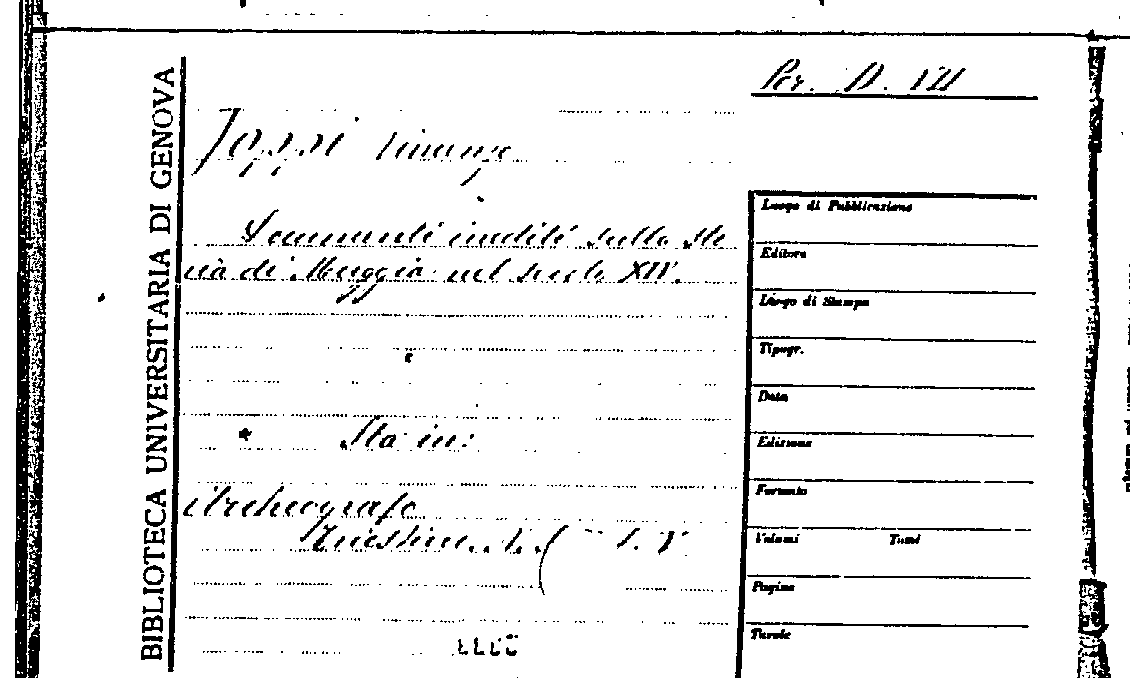 BIBLIOTECA UNIVERSITARIA DI GENOVA
Per. D. VII
Joppi
Documenti inediti sulla sto
ria di Muggia nel secolo XIV.
Sta in:
Archeografo
Triestino. N. S. T. V
Luogo di Pubblicazione
Editore
Luogo di Stampa
Tipogr.
Data
Edizione
Formato
Volumi Tomi
Pagine
Tavole